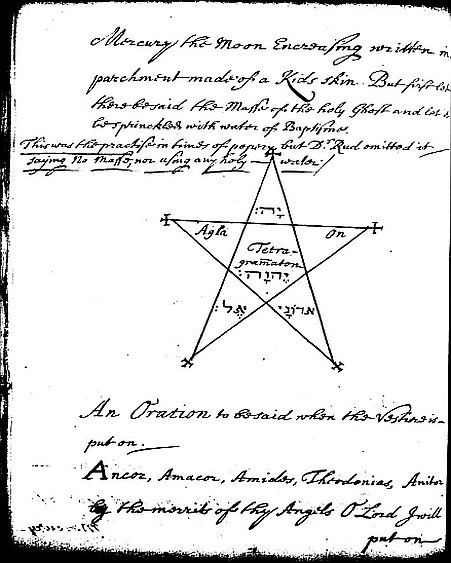 Mercury the Moon Encreasing written in
parchment made of a Kids skin. But first let
there be said the Masse of the holy Ghost and let
be sprinckled with water of Baptisme.
This was the practise in times of popery but Dr. Rud omitted it
saying No Masse, nor using any holy water/
יָהּ:
Agla On
Tetra-
gramaton
יֱהֹוָה:
אֵל: אדוֹנָי
An Oration to be said when the Vesture is
put on.
Ancor, Amacor, Amides, Theodonias, Anitor
by the merrits of thy Angels O Lord I will
put on